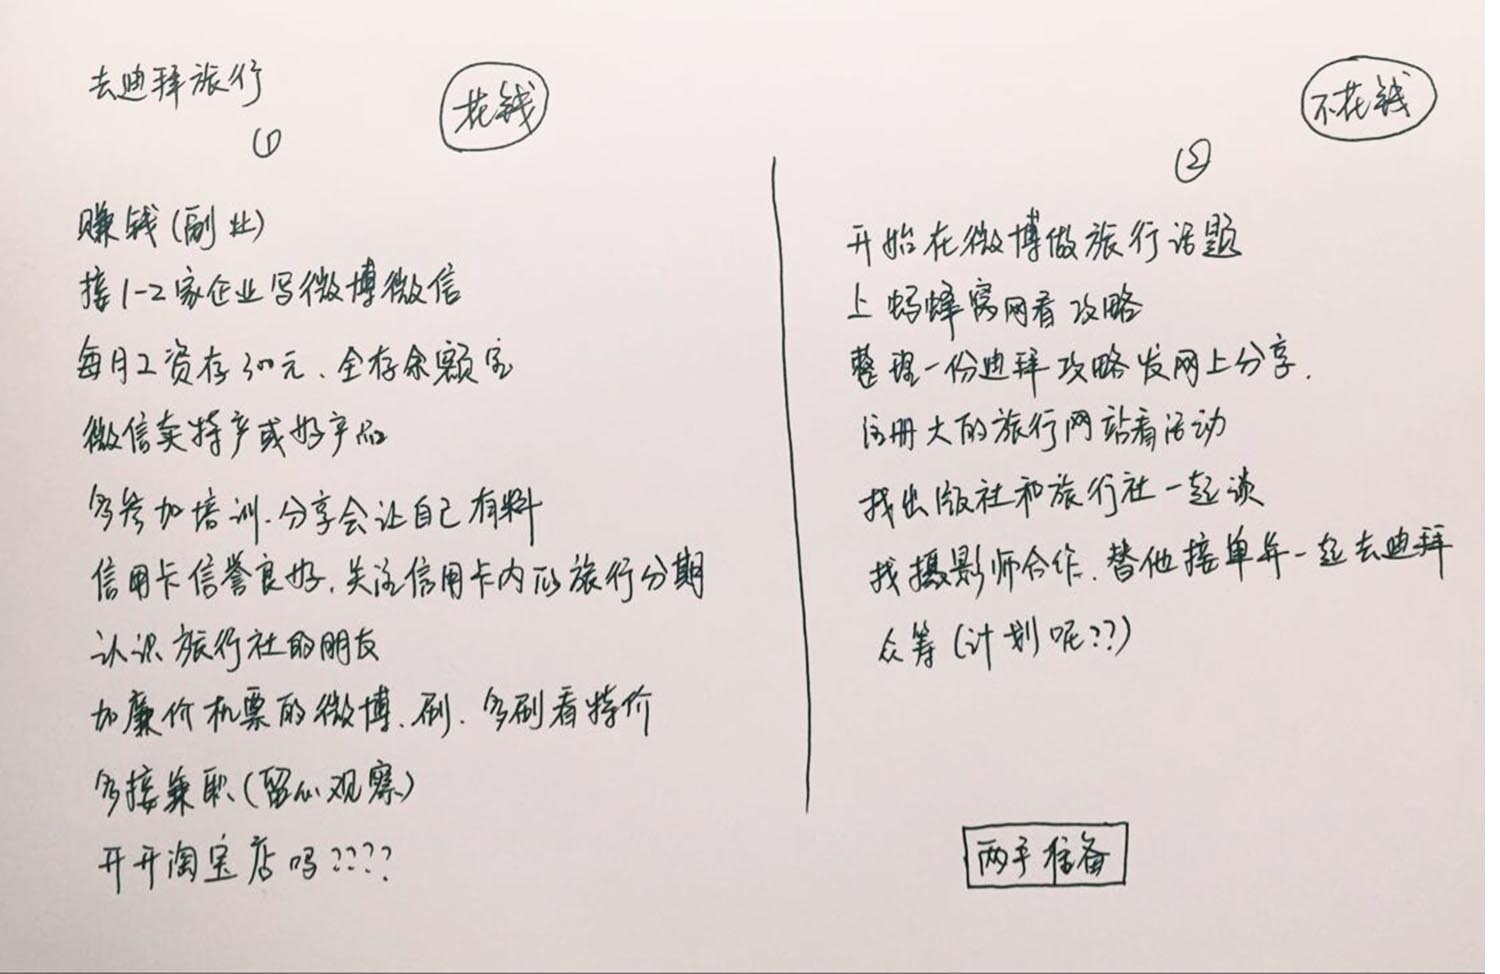 去迪拜旅行
①
花钱
赚钱(副业)
接1-2家企业写微博微信
每月工资存300元、全存余额宝
微信卖特产或好产品
多参加培训、分享会让自己有料
信用卡信誉良好,关注信用卡内的旅行分期
认识旅行社的朋友
加廉价机票的微博、刷、多刷看特价
多接兼职(留心观察)
开开淘宝店吗????
不花钱
②
开始在微博做旅行话题
上蚂蜂窝网看攻略
整理一份迪拜攻略发网上分享.
注册大的旅行网站看活动
找出版社和旅行社一起谈
找摄影师合作、替他接单并一起去迪拜
众筹(计划呢??)
两手准备